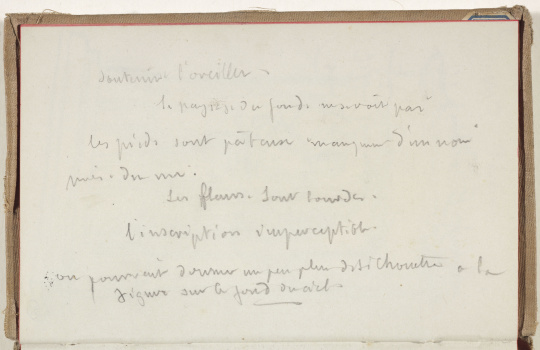 soutenir l'oreiller.
le paysage du fond se voit par
les pieds sont pâteux manquent d'un nom
du
Les fleurs sont lourdes.
l'inscription imperceptible.
on pourrait donner un peu plus de silhouette à la
figure sur le fond du ciel.